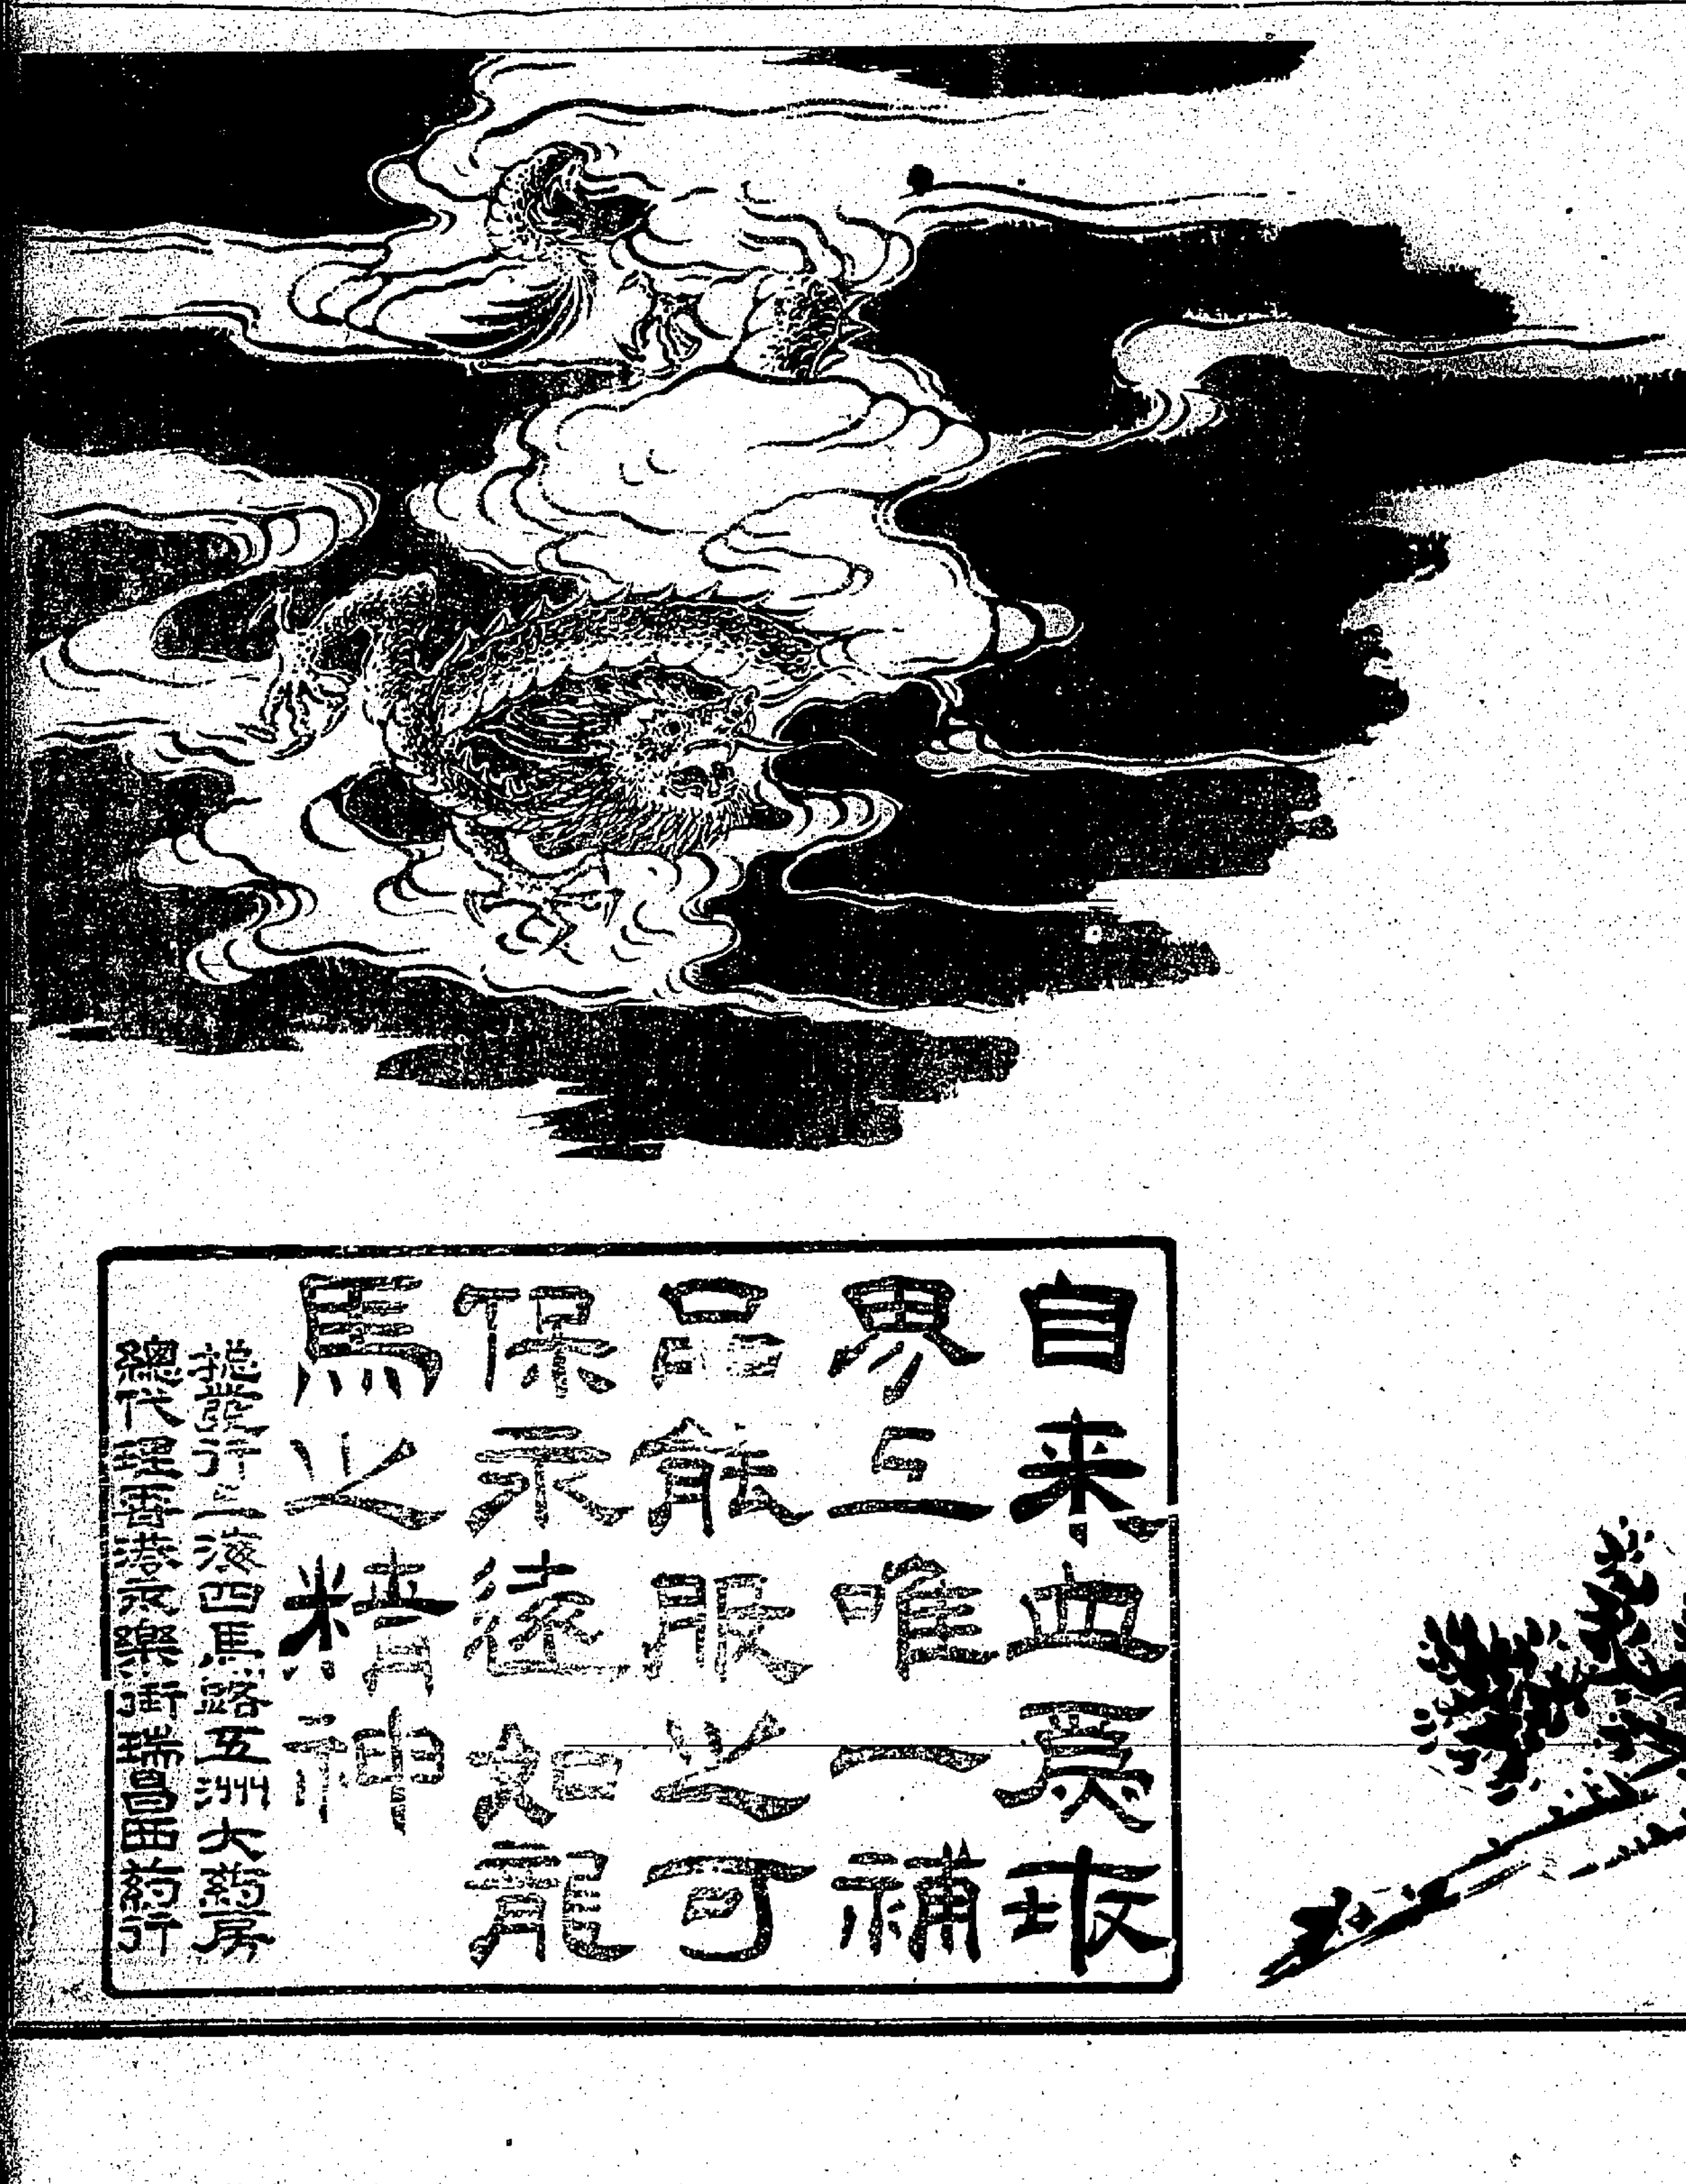 自来血爲世
界上唯一補
品能服之可
保永遠如龍
馬之精神
總發行上海四馬路五洲大藥房
總代理香港永樂街瑞昌西藥行